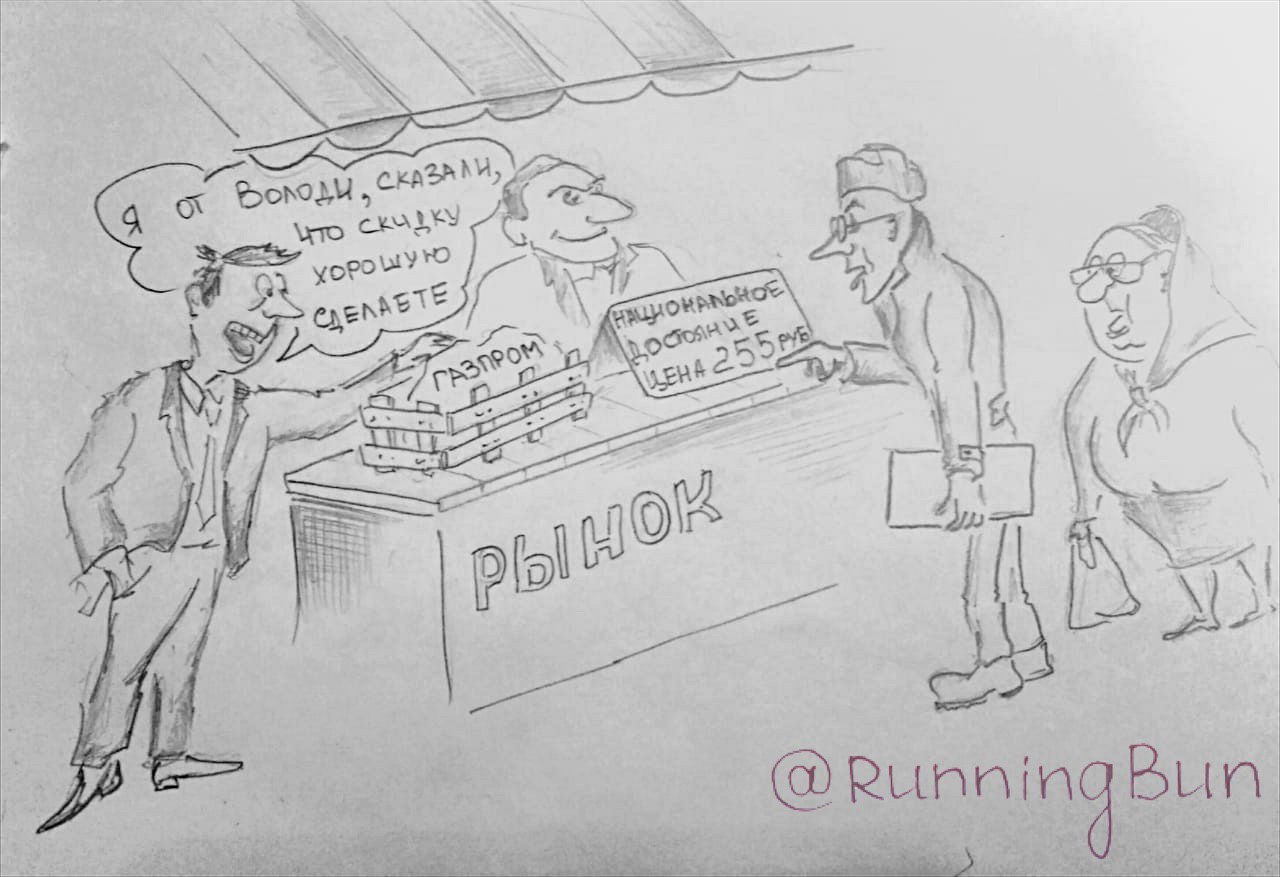 Я ОТ ВОЛОДИ, СКАЗАЛИ,
ЧТО СКИДКУ
ХОРОШУЮ
СДЕЛАЕТЕ
ГАЗПРОМ
НАЦИОНАЛЬНОЕ
ДОСТОЯНИЕ
ЦЕНА 255 РУБ
РЫНОК
@RunningBun